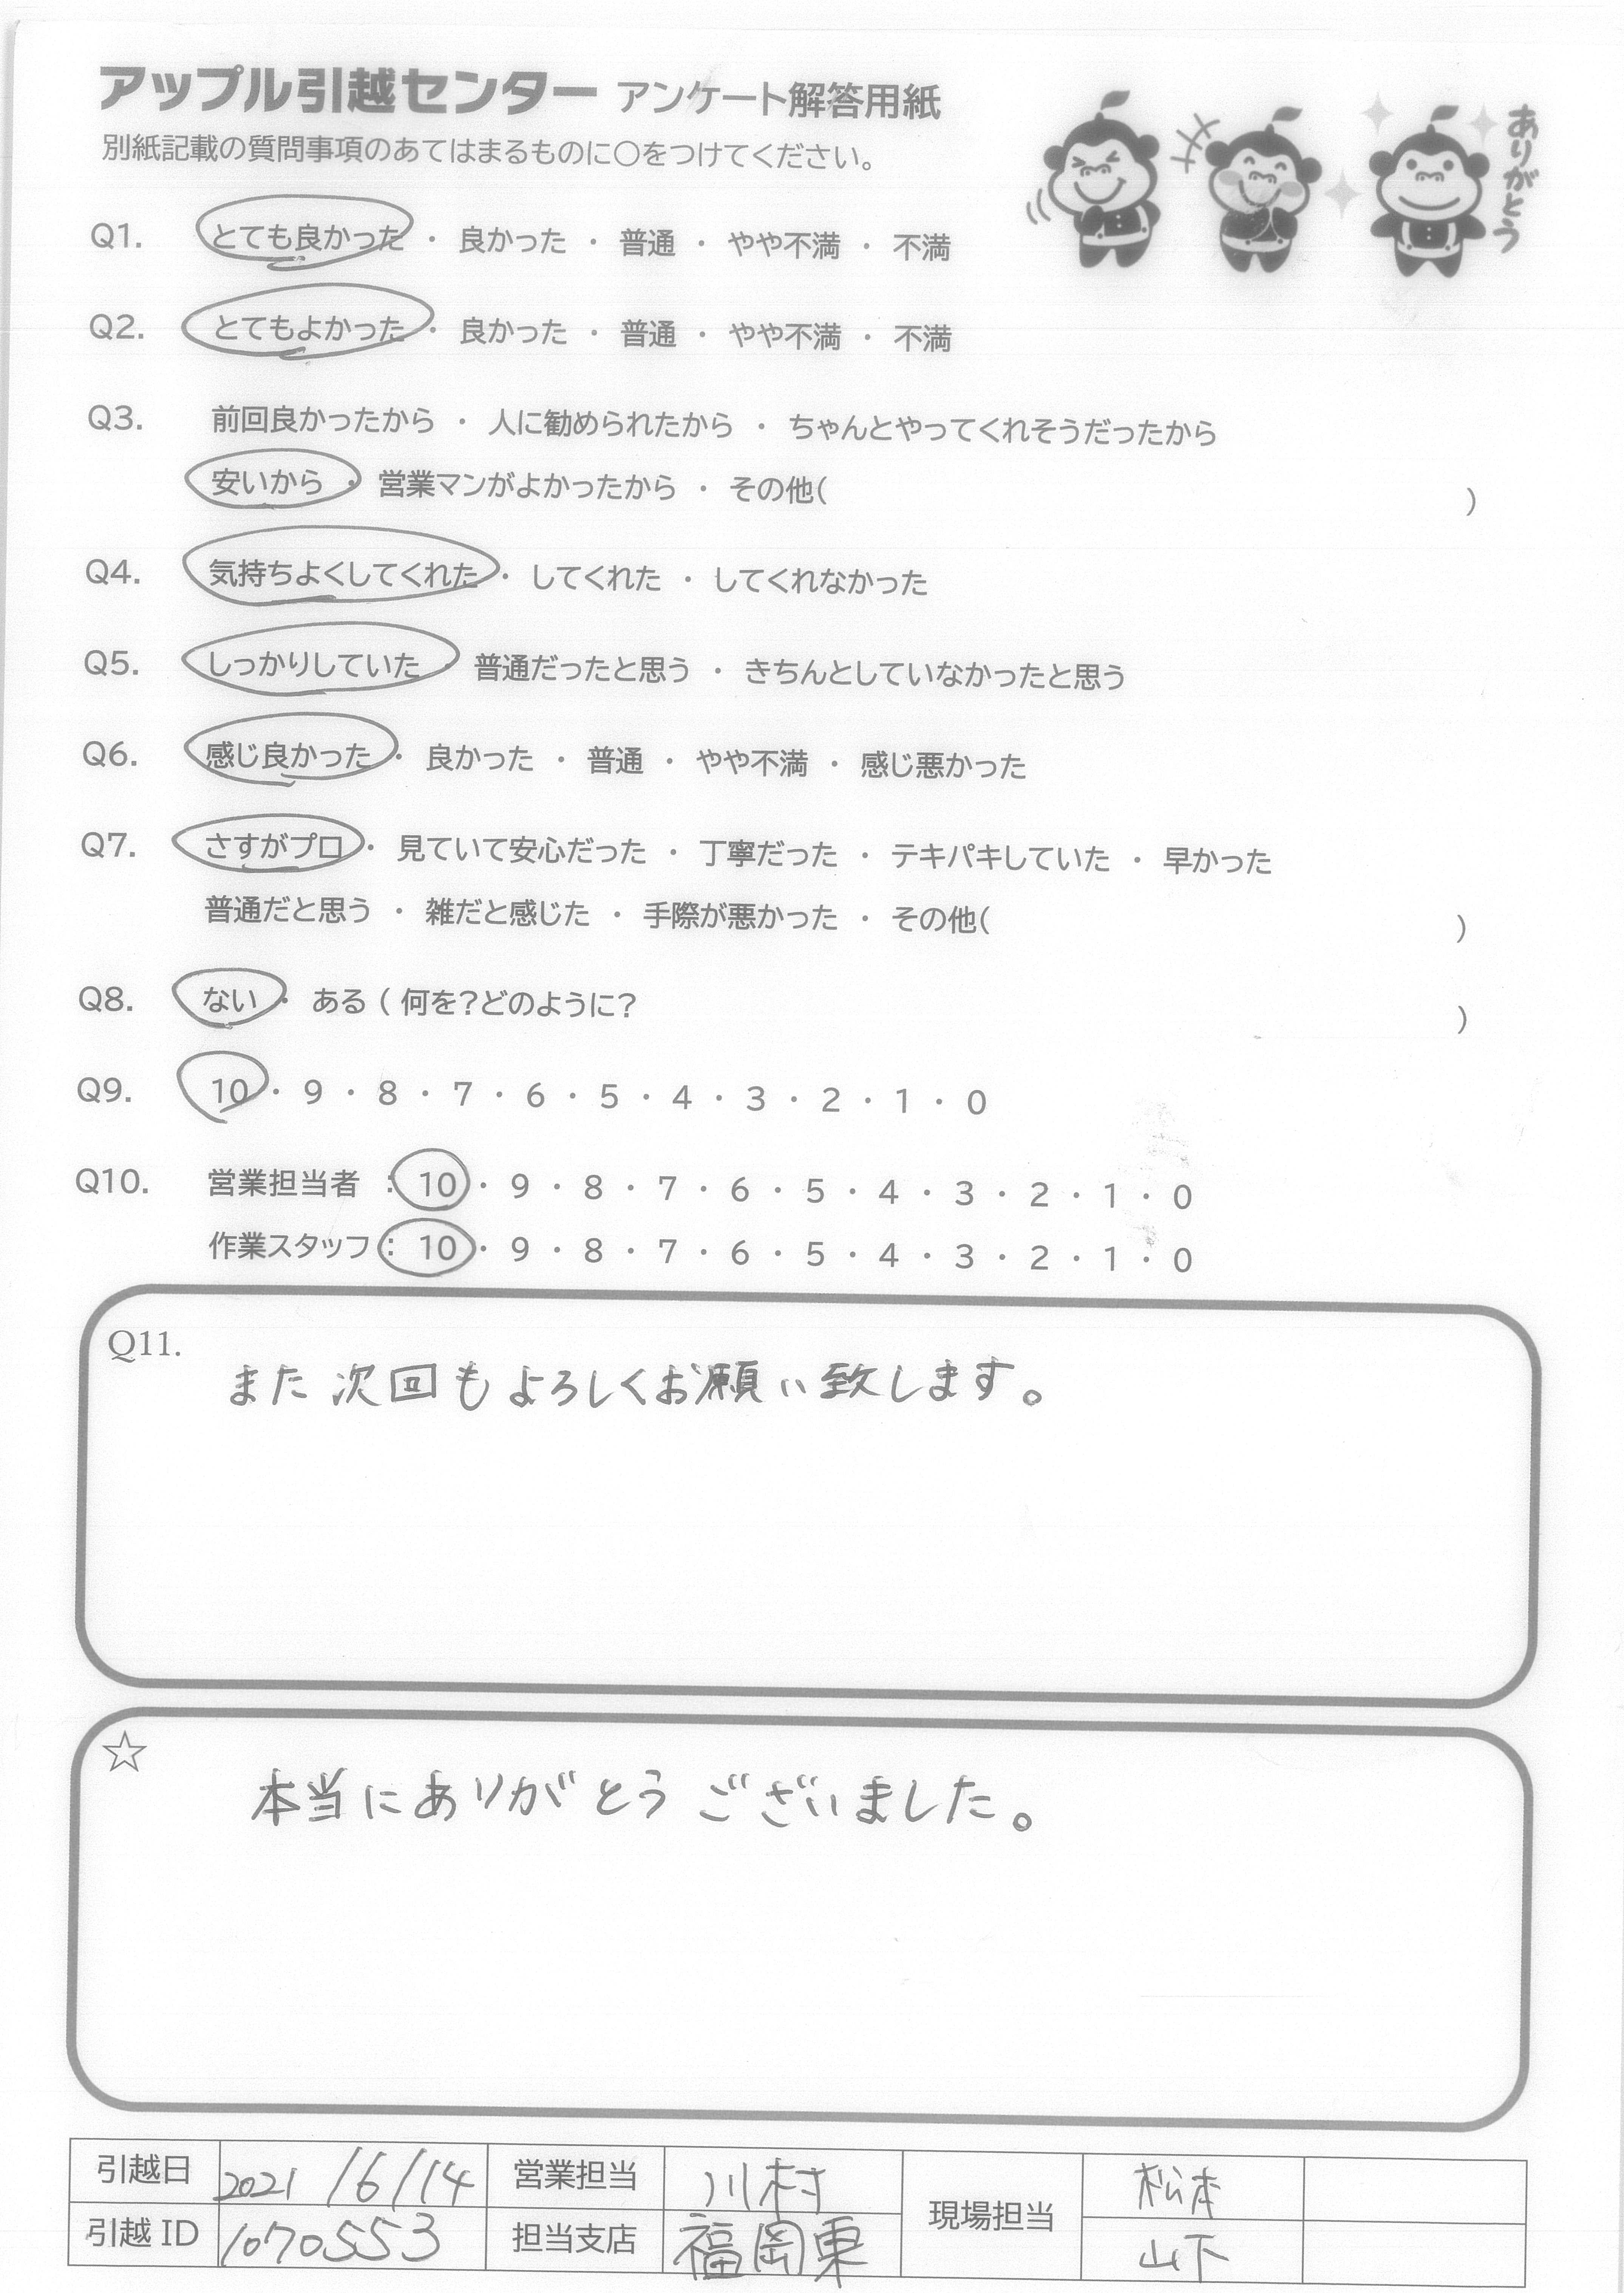 アップル引越センター アンケート解答用紙
ありがとう
別紙記載の質問事項のあてはまるものに○をつけてください。
Q1. とても良かった ・ 良かった ・ 普通 ・ やや不満 ・ 不満
Q2. とてもよかった ・ 良かった ・ 普通 ・ やや不満 ・ 不満
Q3. 前回良かったから ・ 人に勧められたから ・ ちゃんとやってくれそうだったから
安いから ・ 営業マンがよかったから ・ その他( )
Q4. 気持ちよくしてくれた ・ してくれた ・ してくれなかった
Q5. しっかりしていた ・ 普通だったと思う ・ きちんとしていなかったと思う
Q6. 感じ良かった ・ 良かった ・ 普通 ・ やや不満 ・ 感じ悪かった
Q7. さすがプロ ・ 見ていて安心だった ・ 丁寧だった ・ テキパキしていた ・ 早かった
普通だと思う ・ 雑だと感じた ・ 手際が悪かった ・ その他( )
Q8. ない ・ ある ( 何を?どのように? )
Q9. 10 ・ 9 ・ 8 ・ 7 ・ 6 ・ 5 ・ 4 ・ 3 ・ 2 ・ 1 ・ 0
Q10. 営業担当者 : 10 ・ 9 ・ 8 ・ 7 ・ 6 ・ 5 ・ 4 ・ 3 ・ 2 ・ 1 ・ 0
作業スタッフ : 10 ・ 9 ・ 8 ・ 7 ・ 6 ・ 5 ・ 4 ・ 3 ・ 2 ・ 1 ・ 0
Q11.
また次回もよろしくお願い致します。
☆
本当にありがとうございました。
引越日 2021/6/14 営業担当 川村 現場担当 松本
引越ID 1070553 担当支店 福岡東 山下